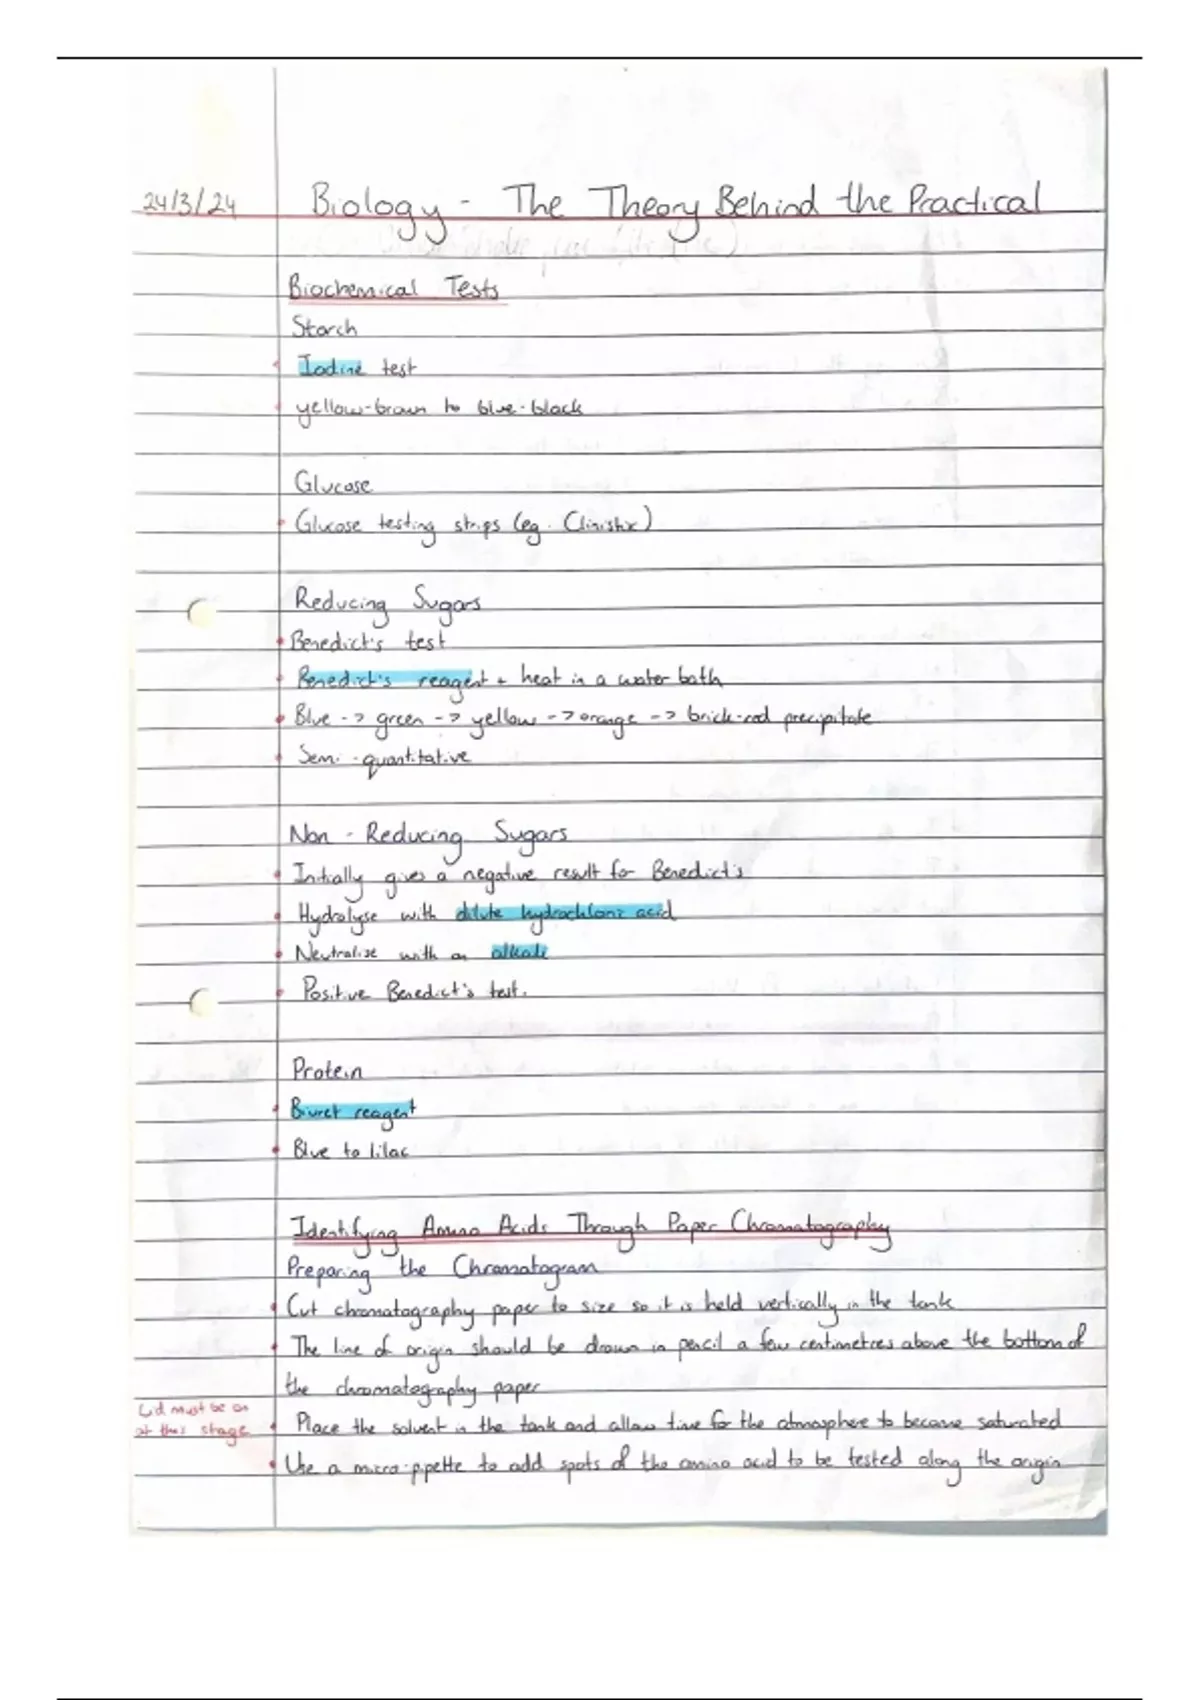 24/3/24 Biology - The Theory Behind the Practical
Biochemical Tests
Starch
Iodine test
yellow-brown to blue-black
Glucose
Glucose testing strips (eg. Clinistix)
Reducing Sugars
Benedict's test
Benedict's reagent + heat in a water bath
Blue -> green -> yellow -> orange -> brick-red precipitate
Semi-quantitative
Non-Reducing Sugars
Initially gives a negative result for Benedict's
Hydrolyse with dilute hydrochloric acid
Neutralise with an alkali
Positive Benedict's test.
Protein
Biuret reagent
Blue to lilac
Identifying Amino Acids Through Paper Chromatography
Preparing the Chromatogram
Cut chromatography paper to size so it is held vertically in the tank
The line of origin should be drawn in pencil a few centimetres above the bottom of
the chromatography paper
Lid must be on
at this stage
Place the solvent in the tank and allow time for the atmosphere to become saturated
Use a micro-pipette to add spots of the amino acid to be tested along the origin